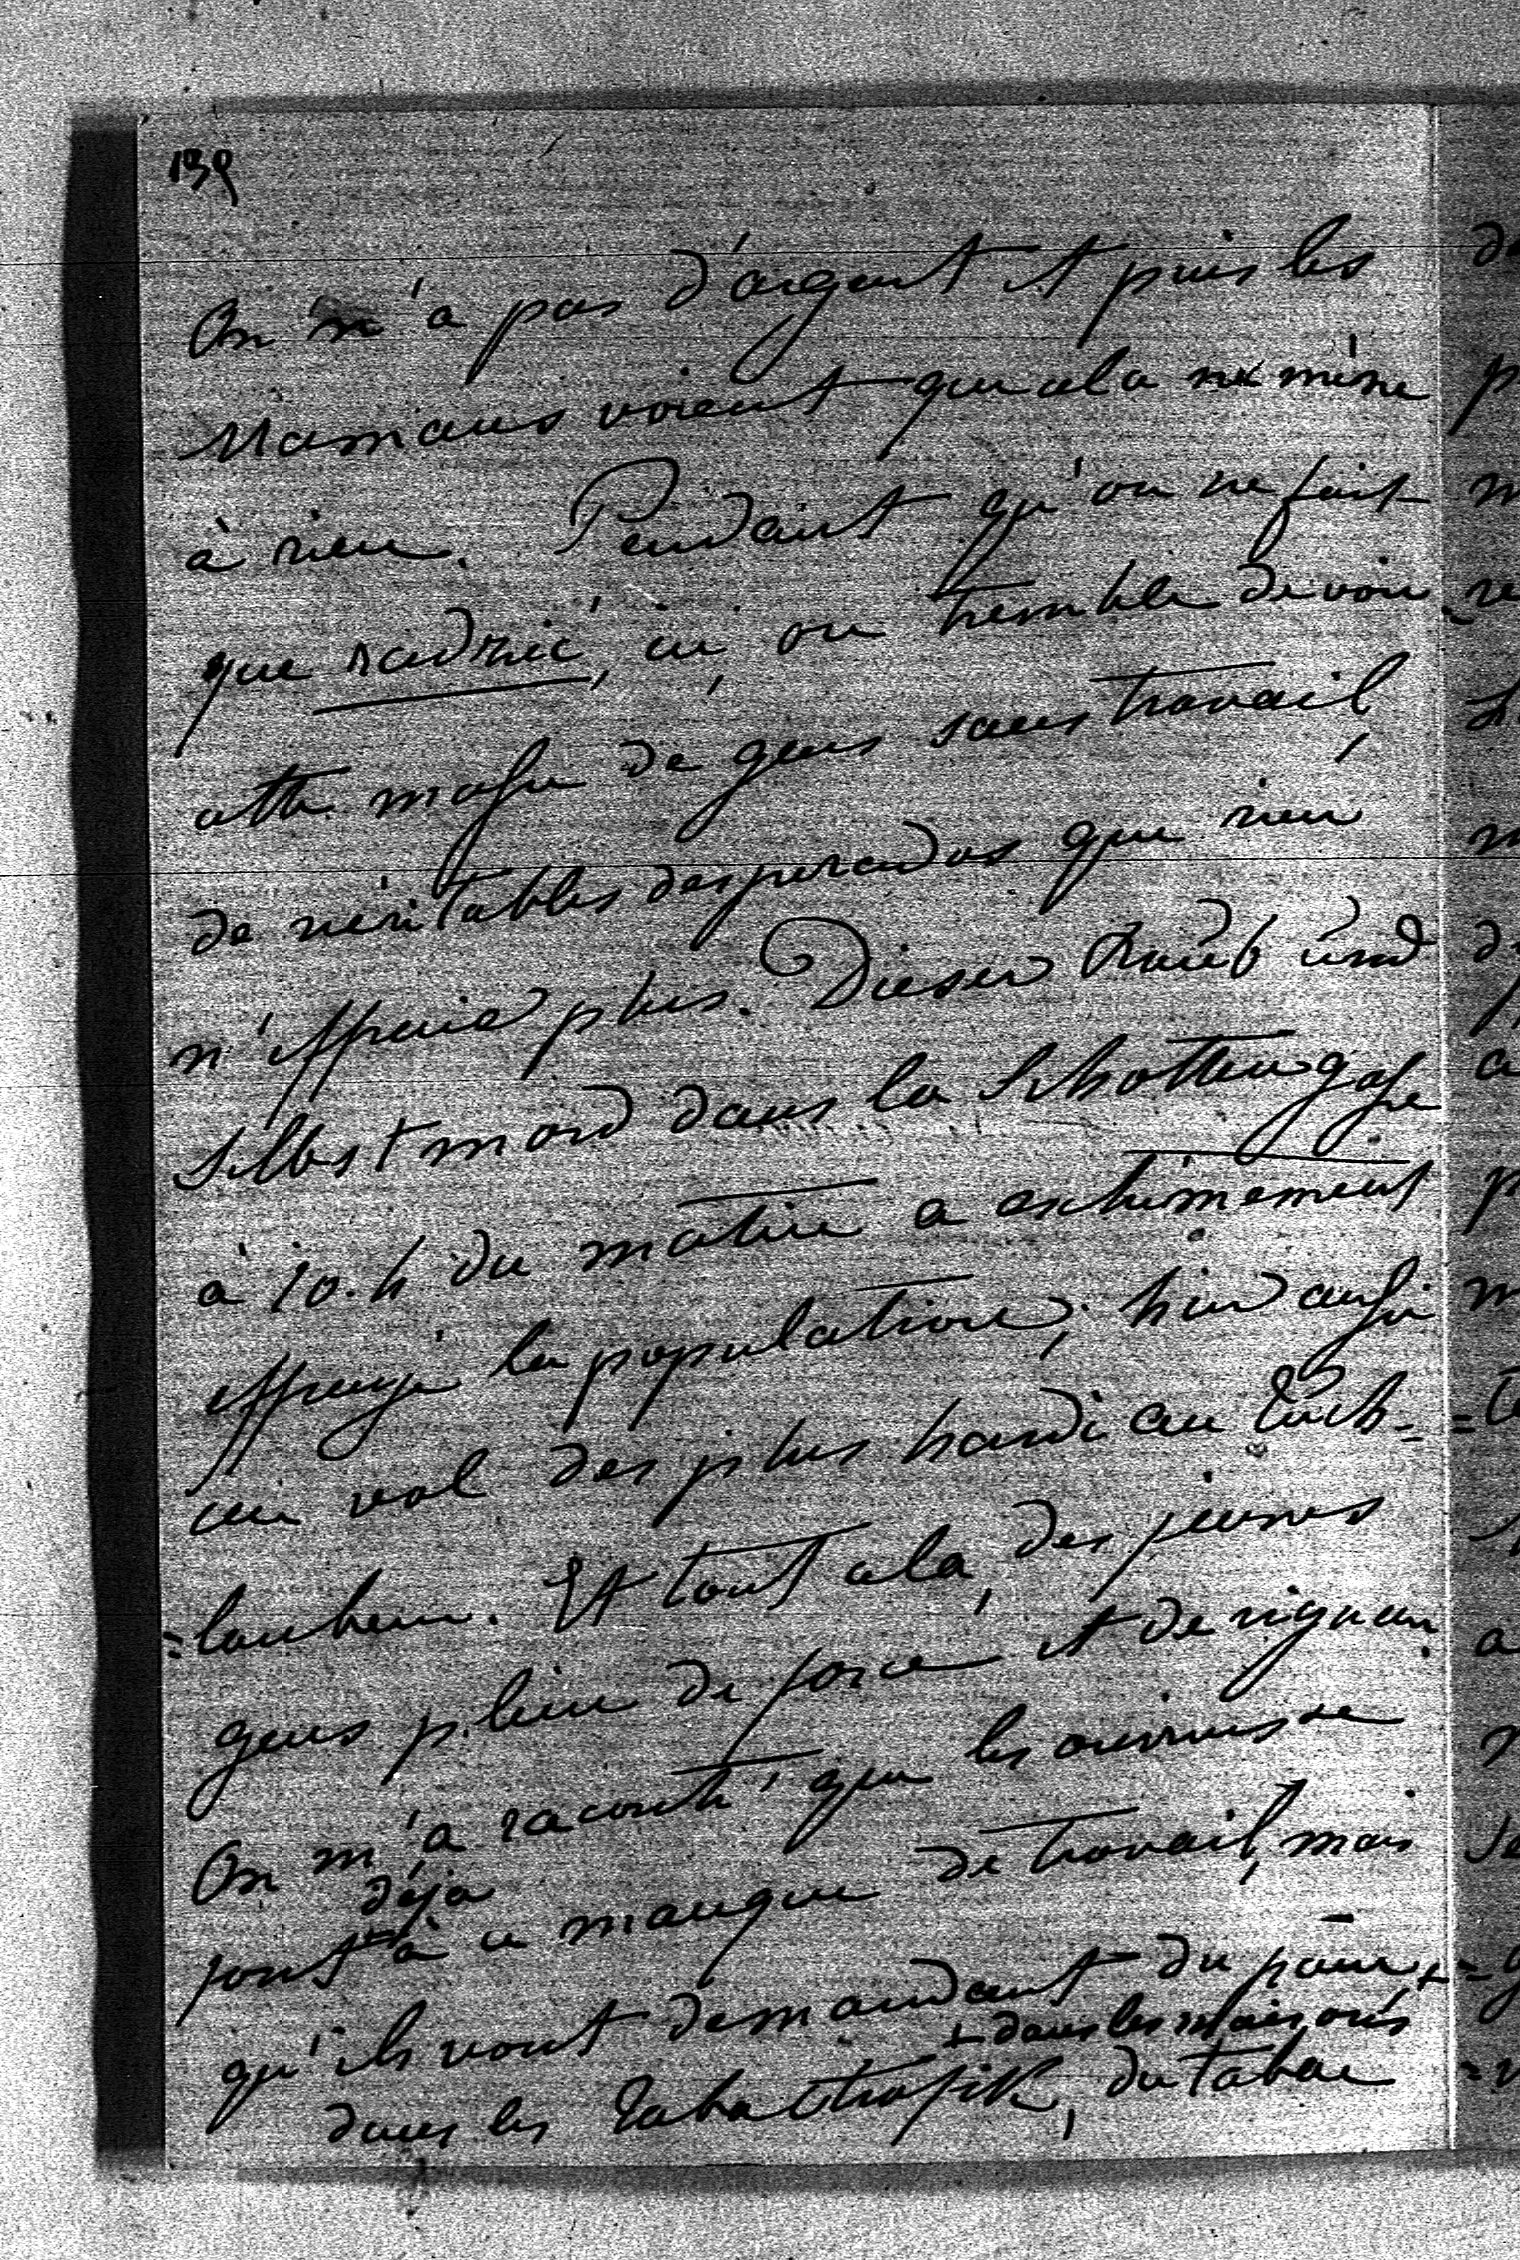 139
On n'a pas d'argent et puis les
Mamans voient que cela ne mène
à rien. Pendant qu'on ne fait
que radzić, ici, on tremble de voir
cette masse de gens sans travail
de véritables desperados que rien
n'effraie plus. Dieser Raub und
Selbstmord dans la Schottengasse
à 10. h du matin a extrêmement
effrayé la population; hier aussi
un vol des plus hardi au Tuch=
=lauben. Et tout cela, des jeunes
gens plein de force et de vigueur.
On m'a raconté que les ouvriers se
font déjà à ce manque de travail, mais
qu'ils vont demandant du pain +
+ dans les maisons
dans les Tabaktrafik, du tabac